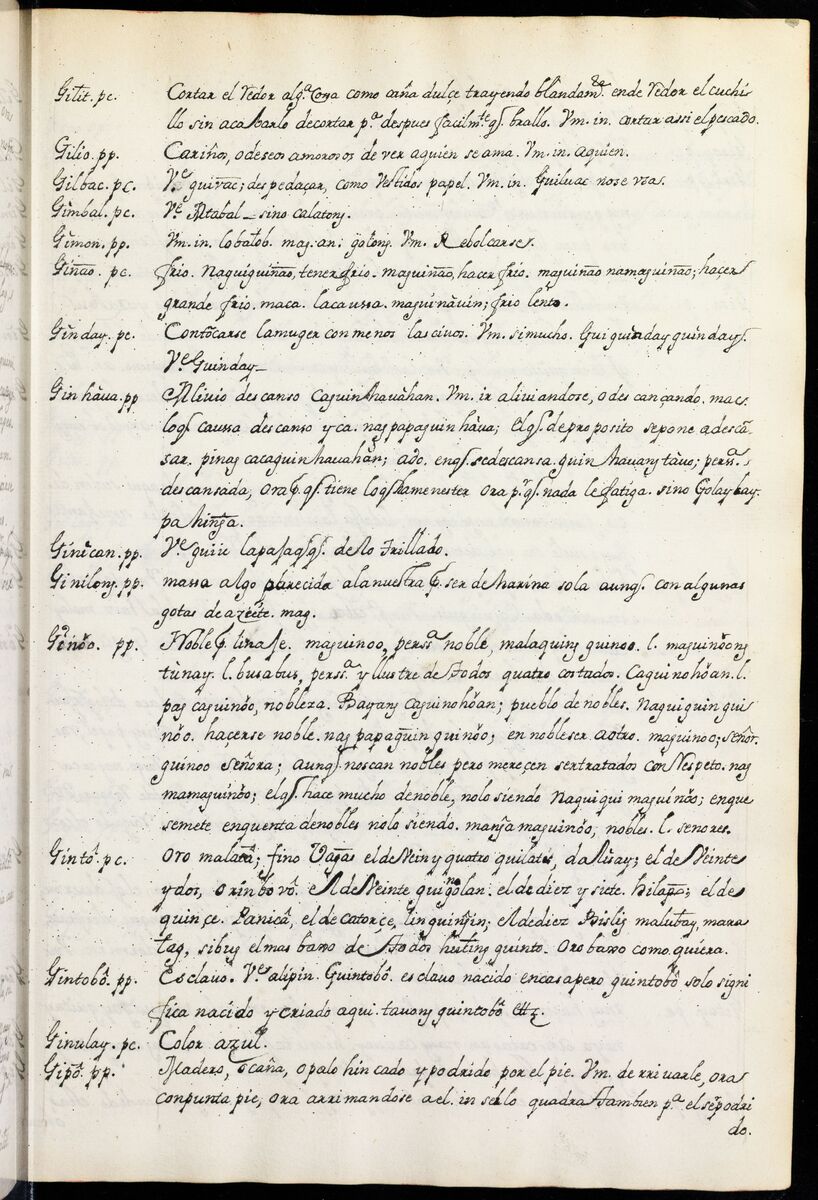 Gilit. pc. Cortar el redor alg.ª cosa como caña dulçe trayendo blandam.te en de redor el cuchi
llo sin acabarlo de cortar p.ª despues facilm.te qbrallo. Vm. in. cortar assi el pescado.
Gilio. pp. Cariños, o deseos amorosos de ver a quien se ama. Vm. in. aquien.
Gilbac. pc. V.e guivac; despedaçar, como vestidos papel. Vm. in. Guiluac no se vsa.
Gimbal. pc. V.e Atabal _ sino calatong.
Gimon. pp. Vm. in. lobatob. mag. an; Vm. Rebolcarse.
Ginao. pc. frio. Naguiguinao, tener frio. maguinao, hacer frio. maguinao namaguinao; haçer
grande frio. maca. la caussa. maguinàuin; frio lento.
Ginday. pc. Contocarse la muger con menos lasciuos. Vm. si mucho. Guiguinday guinday.
V.e Guinday _
Ginhàua. pp Aliuio descanso Caguinhauàhan. Vm. ir aliviandose, o descançando. mac.
lo q caussa descanso y ca. nag papaguinhàua; El q de proposito se pone a descã
sar. pinag cacaguinhauahãn; ado. en q se descansa. guinhauang tàuo; perss.ª
descansada, ora p. q tiene lo q ha menester ora p.r q nada le fatiga. sino Golaybay.
pahinga.
Ginican. pp. V.e guiic la paja q q. de lo trillado.
Ginilong. pp. massa algo parecida a la nuestra p. ser de harina sola aunq con algunas
gotas de azeite. mag.
Ginòo. pp. Noble p. linaje. maguinoo, perss.ª noble, malaquing guinoo. l. maguinòong
tùnay. l. busabus, perss.ª yllustre de todos quatro costados. Caguinohòan. l.
pag caguinòo, nobleza. Bayang caguinohòan; pueblo de nobles. Naguiguin gui
nòo. haçerse noble. nag papaguin guinòo; ennobleser. aotro. maguinoo; señor.
guinoo señora; aunq no scan nobles pero mereçen ser tratados con respeto. nag
mamaguinòo; el q hace mucho de noble, nolo siendo Naguiqui maguinòo; en que
se mete enquenta de nobles nolo siendo. manga maguinòo, nobles. l. señores.
Gintô. pc. Oro fino el de veinyquatro quilates, dalisay; el de veinte
y dos, El de veinte guinogolan. el de diez y siete. hilapo; el de
quinçe. Panicâ, el de catorçe, linguingin; El de diez Bislig malubay, mara
tag, sibug el mas baxo de todos hutìng guinto. Oro baxo como quiera.
Gintobô. pp. Esclauo. V.e alipin. Guintobô. esclauo nacido en casa pero guintobô solo signi
fica nacido y criado aqui. tauong guintobô ettz.
Ginulay. pc. Color azul.
Gipô. pp. Madero, o caña, o palo hincado y podrido por el pie. Vm. derriuarle, ora
con punta pie, ora arrimandose a el. in serlo quadra tambien p.ª el ser podri
do.